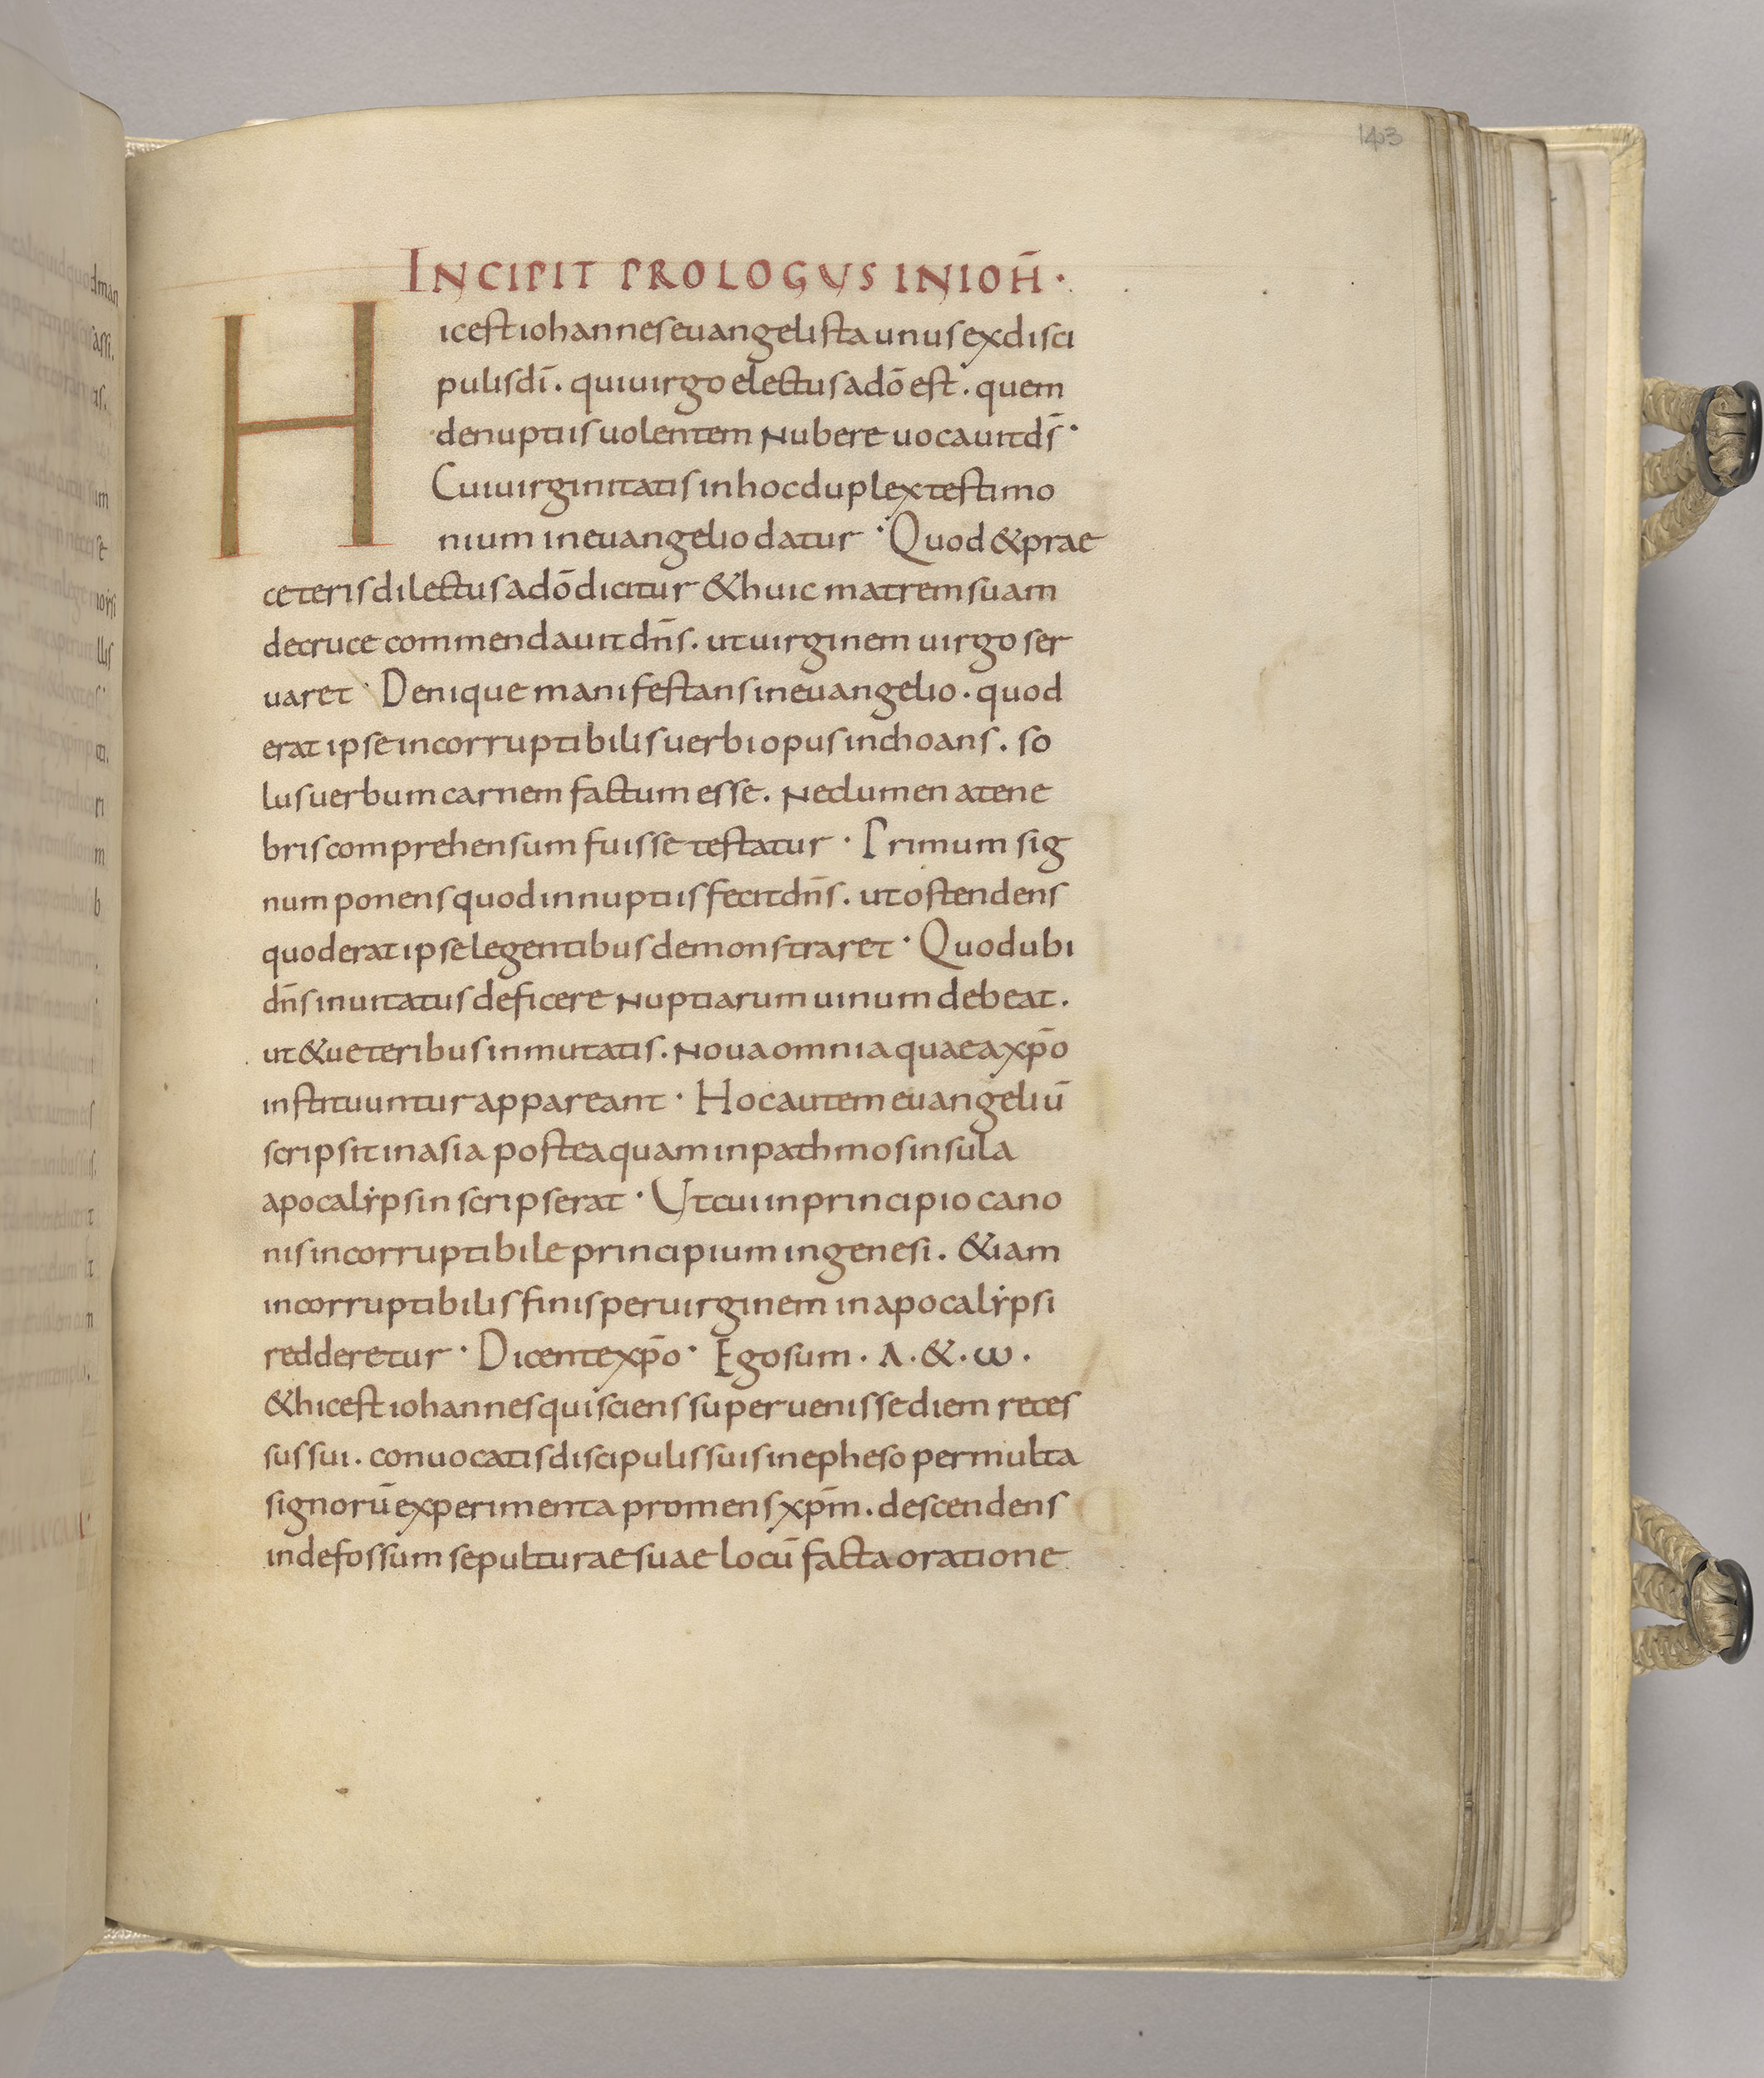 143
INCIPIT PROLOGUS IN IOH̄ ·
Hic est iohannes euangelista unus ex disci
pulis dī . qui uirgo electus a dō est . quem
de nuptiis uolentem nubere uocauit d̄s ·
Cui uirginitatis in hoc duplex testimo
nium in euangelio datur · Quod & prae
ceteris dilectus a dō dicitur & huic matrem suam
de cruce commendauit dn̄s . ut uirginem uirgo ser
uaret · Denique manifestans in euangelio . quod
erat ipse incorruptibilis uerbi opus inchoans . so
lus uerbum carnem factum esse . nec lumen a tene
bris comprehensum fuisse testatur · Primum sig
num ponens quod in nuptiis fecit dn̄s . ut ostendens
quod erat ipse legentibus demonstraret · Quod ubi
dn̄s inuitatus deficere nuptiarum uinum debeat .
ut & ueteribus inmutatis . noua omnia quae a xp̄o
instituuntur appareant · Hoc autem euangeliū
scripsit in asia postea quam in pathmos insula
apocalẏpsin scripserat · Ut cui in principio cano
nis incorruptibile principium in genesi . & iam
incorruptibilis finis per uirginem in apocalẏpsi
redderetur · Dicente xp̄o · Ego sum . Λ . & . ω .
& hic est iohannes qui sciens superuenisse diem reces
sus sui . conuocatis discipulis suis in epheso per multa
signorū experimenta promens xp̄m . descendens
in defossum sepulturae suae locū facta oratione